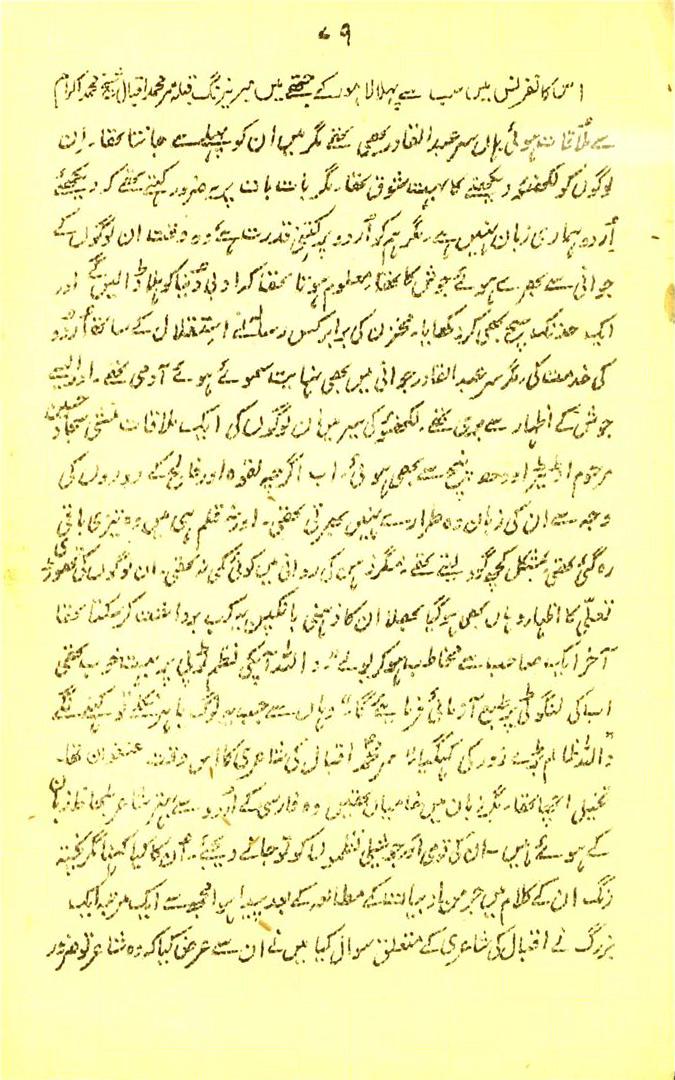 ۷۹
اس کانفرنس میں سب سے پہلا لاہور کے جتھے میں میر نیرنگ قبلہ سر محمد اقبال شیخ محمد اکرام
سے ملاقات ہوئی یہاں سر عبدالقادر بھی تھے مگر میں ان کو پہلے سے جانتا تھا۔ ان
لوگوں کو لکھنؤ دیکھنے کا بہت شوق تھا۔ مگر بات بات پر یہ ضرور کہتے تھے کہ دیکھئے
اُردو ہماری زبان نہیں ہے۔ مگر ہم کو اُردو پر کتنی قدرت ہے وہ وقت ان لوگوں کے
جوانی سے بھرے ہوئے جوش کا تھا۔ معلوم ہوتا تھا کہ ادبی دنیا کو ہلا ڈالیں گے اور
ایک حد تک سچ بھی کر دکھایا۔ مخزن کی برابر کس رسالے نے استقلال کے ساتھ اُردو
کی خدمت کی۔ مگر سر عبدالقادر جوانی میں بھی نہایت سموئے ہوئے آدمی تھے۔ اور ایسے
جوش کے اظہار سے بری تھے۔ لکھنؤ کی سیر میں ان لوگوں کی ایک ملاقات منشی سجاد حسین
مرحوم اڈیٹر اودھ پنچ سے بھی ہوئی۔ اب اگرچہ لقوہ اور فالج کے دوروں کی
وجہ سے ان کی زبان وہ طرارے نہیں بھرتی تھی۔ اور نہ قلم ہی میں وہ تیزی باقی
رہ گئی تھی بمشکل کچھ لیتے تھے۔ مگر ذہن کی روانی میں کوئی کمی نہ تھی۔ ان لوگوں کی تھوڑی
تعلّی کا اظہار وہاں بھی ہو گیا بھلا ان کا ذہنی بانکپن یہ کب برداشت کر سکتا تھا
آخر ایک صاحب سے مخاطب ہو کر بولے "واللہ آپکی نظم ٹوپی پر بہت خوب تھی
اب کی لنگوٹی پر طبع آزمائی فرمایئے گا" وہاں سے جب یہ لوگ باہر نکلے تو کہنے لگے
واللہ ظالم بڑے زور کی کہہ گیا" سر محمد اقبال کی شاعری کا اس وقت عنفوان تھا۔
تخیل اچھا تھا۔ مگر زبان میں خامیاں تھیں وہ فارسی کے اُردو سے بہتر شاعر بلحاظ زبان
کے ہوئے ہیں۔ ان کی قومی اور جوشیلی نظموں کو تو جانے دیجئے۔ اُن کا کیا کہنا مگر پختہ
رنگ ان کے کلام میں جرمن ادبیات کے مطالعہ کے بعد پیدا ہوا مجھ سے ایک مرتبہ ایک
بزرگ نے اقبال کی شاعری کے متعلق سوال کیا میں نے ان سے عرض کیا کہ وہ شاعر تو ضرور